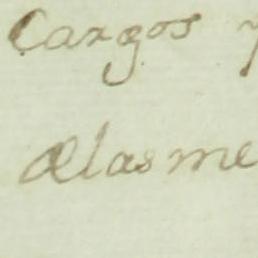 Cargos y
delas me